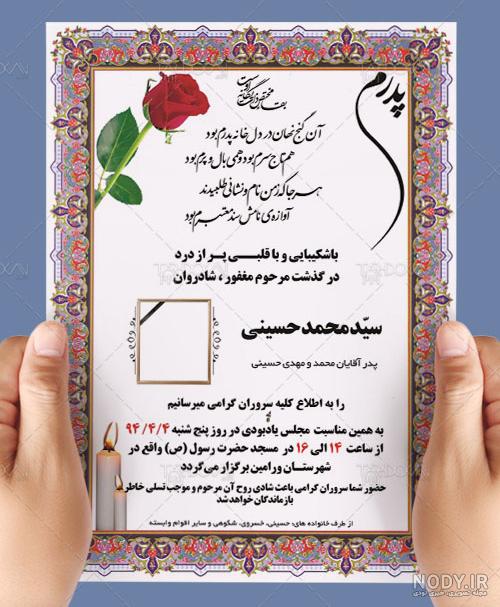 بقا مختص ذات یگانه اوست
پدرم
آن گنج نهان در دل خانه پدرم بود
هم تاج سرم بود و همی بال و پرم بود
هر جا که ز من نام و نشانی طلبیدند
آوازه ی نامش سند معتبرم بود
باشکیبایی و با قلبی پر از درد
در گذشت مرحوم مغفور ، شادروان
سیّد محمد حسینی
پدر آقایان محمد و مهدی حسینی
را به اطلاع کلیه سروران گرامی میرسانیم
به همین مناسبت مجلس یادبودی در روز پنج شنبه ۹۴/۴/۴
از ساعت ۱۴ الی ۱۶ در مسجد حضرت رسول (ص) واقع در
شهرستان ورامین برگزار می گردد
حضور شما سروران گرامی باعث شادی روح آن مرحوم و موجب تسلی خاطر
بازماندگان خواهد شد
از طرف خانواده های: حسینی، خسروی، شکوهی و سایر اقوام وابسته
NODY.IR